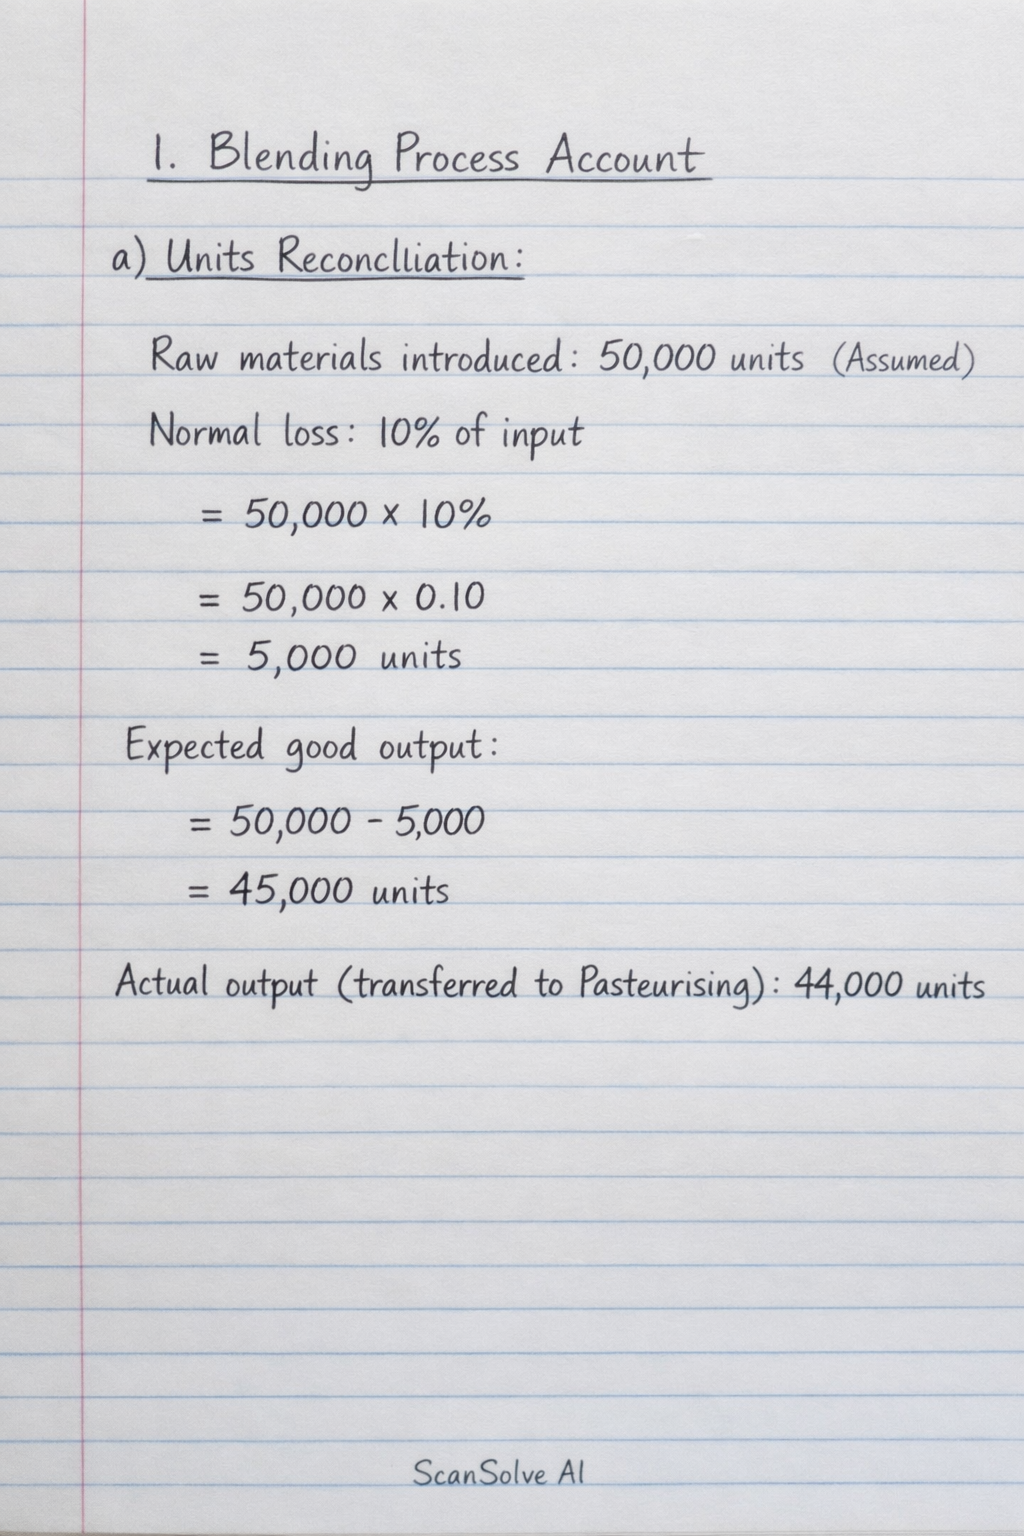 1. Blending Process Account
a) Units Reconclliation:
Raw materials introduced: 50,000 units (Assumed)
Normal loss: 10% of input
= 50,000 x 10%
= 50,000 x 0.10
= 5,000 units
Expected good output:
= 50,000 - 5,000
= 45,000 units
Actual output (transferred to Pasteurising): 44,000 units
ScanSolve AI